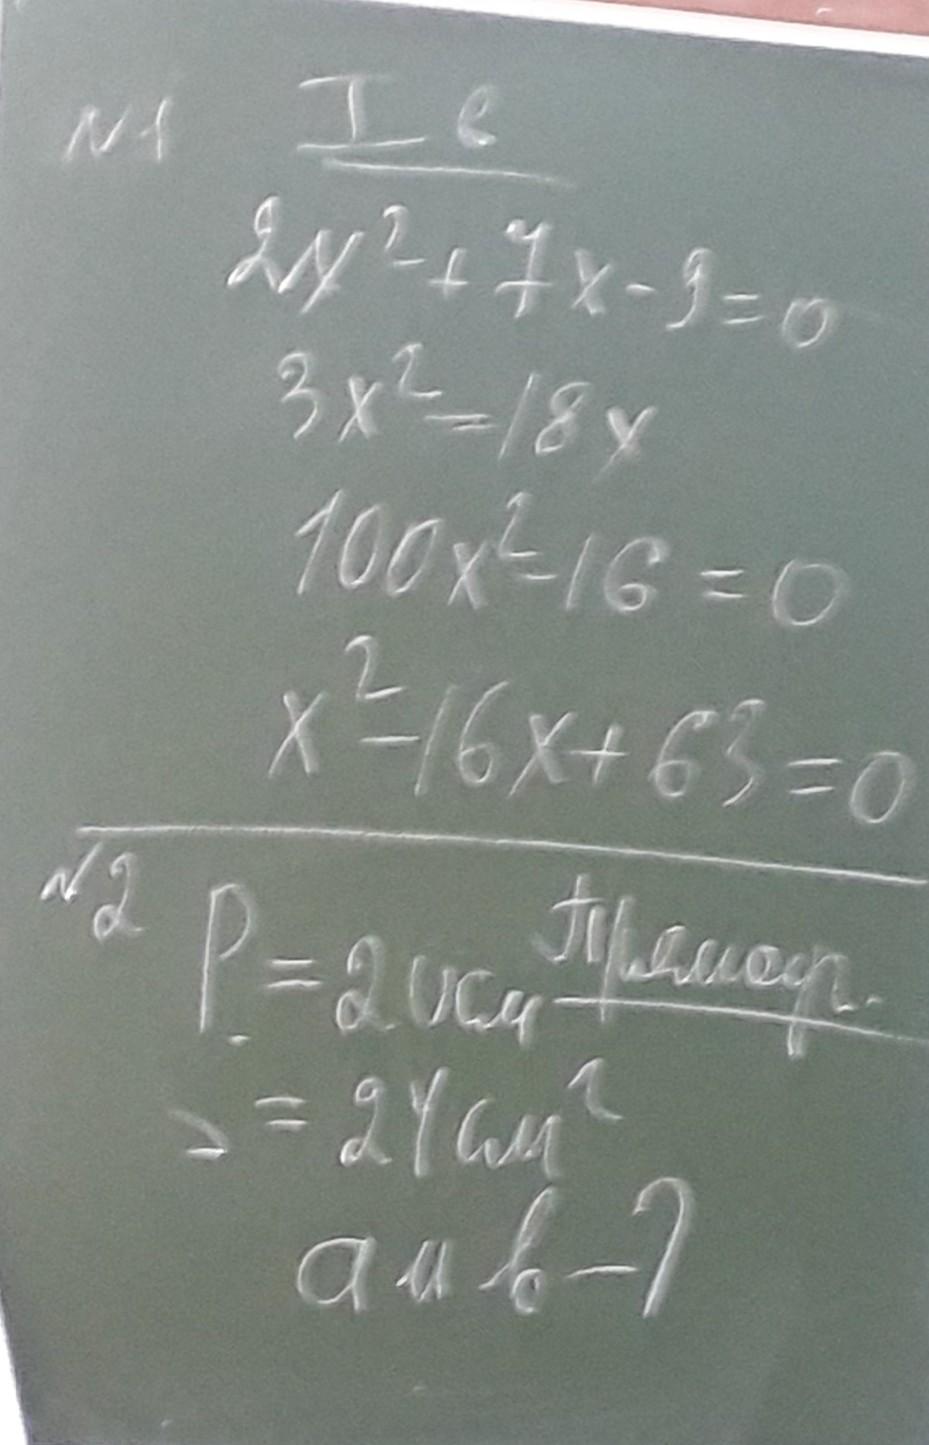 №1 I в
2x²+7x-9=0
3x²=18x
100x²-16=0
x²-16x+63=0
№2
P=20см Прямоуг.
S=24см²
a и b-?